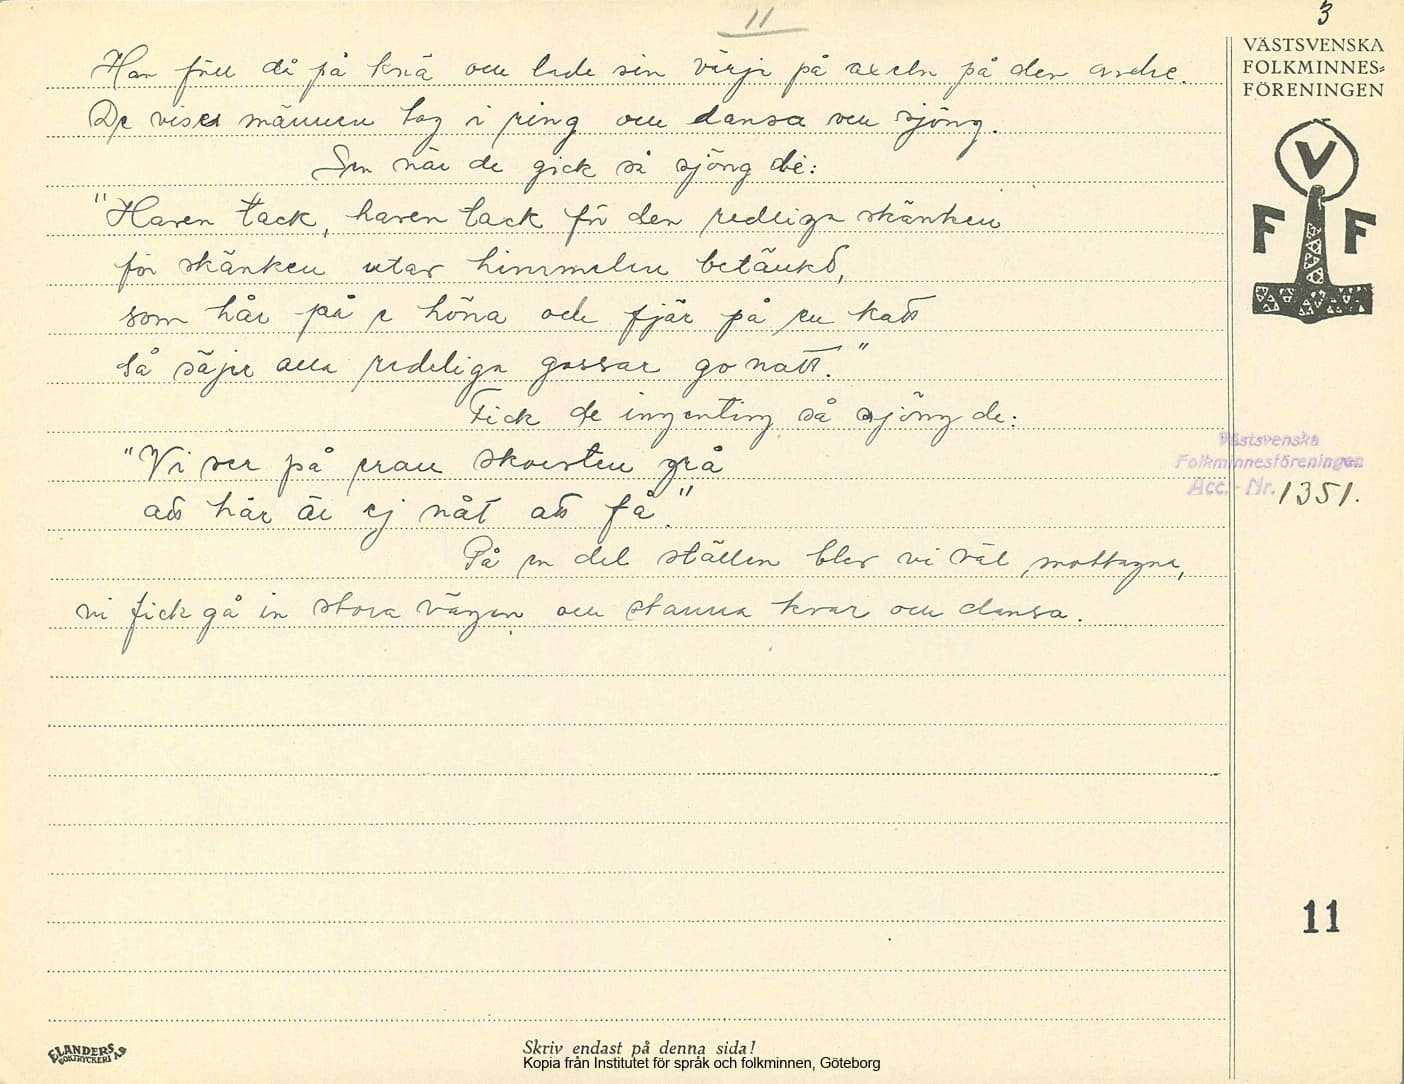 11
3
VÄSTSVENSKA
FOLKMINNES=
FÖRENINGEN
V
F F
Han föll då på knä och lade sin värje på axeln på den andre.
De vise männen tog i ring och dansa och sjöng.
Sen när de gick så sjöng de:
"Haven tack, haven tack för den redliga skänken
för skänken utav himmelen betänkt,
som hår på e höna och fjär på en katt
Så säjer alla redeliga gossar go natt."
Fick de ingenting så sjöng de:
"Vi ser på eran skorsten grå
att här är ej nåt att få."
På en del ställen blev vi väl mottagna,
vi fick gå in stora vägen och stanna kvar och dansa.
Västsvenska
Folkminnesföreningen
Acc.-Nr. 1351.
11
ELANDERS
BOKTRYCKERI A.B
Skriv endast på denna sida!
Kopia från Institutet för språk och folkminnen, Göteborg